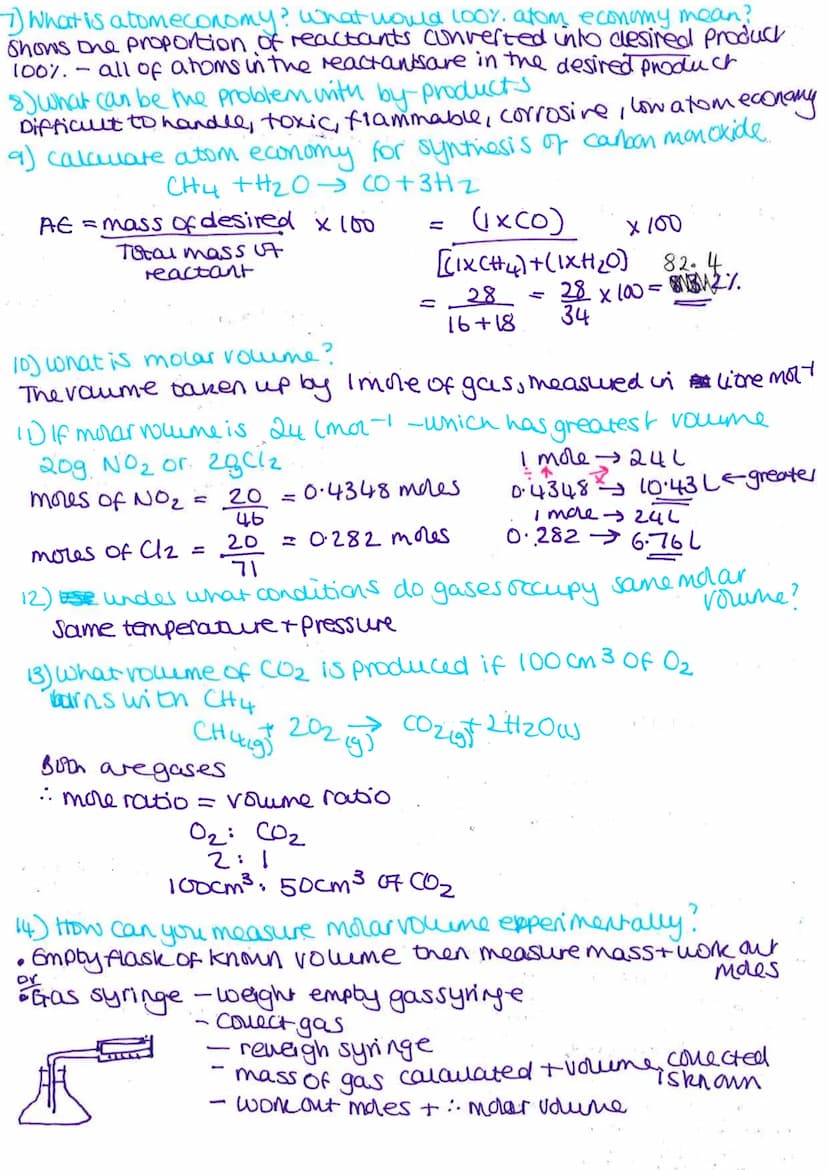 7) What is atom economy? What would 100% atom economy mean?
Shows the proportion of reactants converted into desired product
100% - all of atoms in the reactants are in the desired product
8) What can be the problem with by-products
Difficult to handle, toxic, flammable, corrosive, low atom economy
9) Calculate atom economy for synthesis of carbon monoxide
CH4 + H2O → CO + 3H2
AE = mass of desired / Total mass of reactant × 100 = (1×CO) / [(1×CH4)+(1×H2O)] × 100
= 28 / 16+18 = 28/34 × 100 = 82.42%
10) What is molar volume?
The volume taken up by 1 mole of gas, measured in litre mol-1
11) If molar volume is 24 l mol-1 - which has greatest volume
20g NO2 or 20g Cl2
1 mole → 24L
moles of NO2 = 20/46 = 0.4348 moles
0.4348 → 10.43L ← greater
1 mole → 24L
moles of Cl2 = 20/71 = 0.282 moles
0.282 → 6.76L
12) under what conditions do gases occupy same molar volume?
Same temperature + pressure
13) What volume of CO2 is produced if 100cm3 of O2
burns with CH4
CH4(g) + 2O2(g) → CO2(g) + 2H2O(l)
Both are gases
∴ mole ratio = volume ratio
O2 : CO2
2 : 1
100cm3 : 50cm3 of CO2
14) How can you measure molar volume experimentally?
• Empty flask of known volume then measure mass + work out
moles
or
• Gas syringe - weight empty gas syringe
- Collect gas
- reweigh syringe
- mass of gas calculated + volume collected
is known
- work out moles + ∴ molar volume